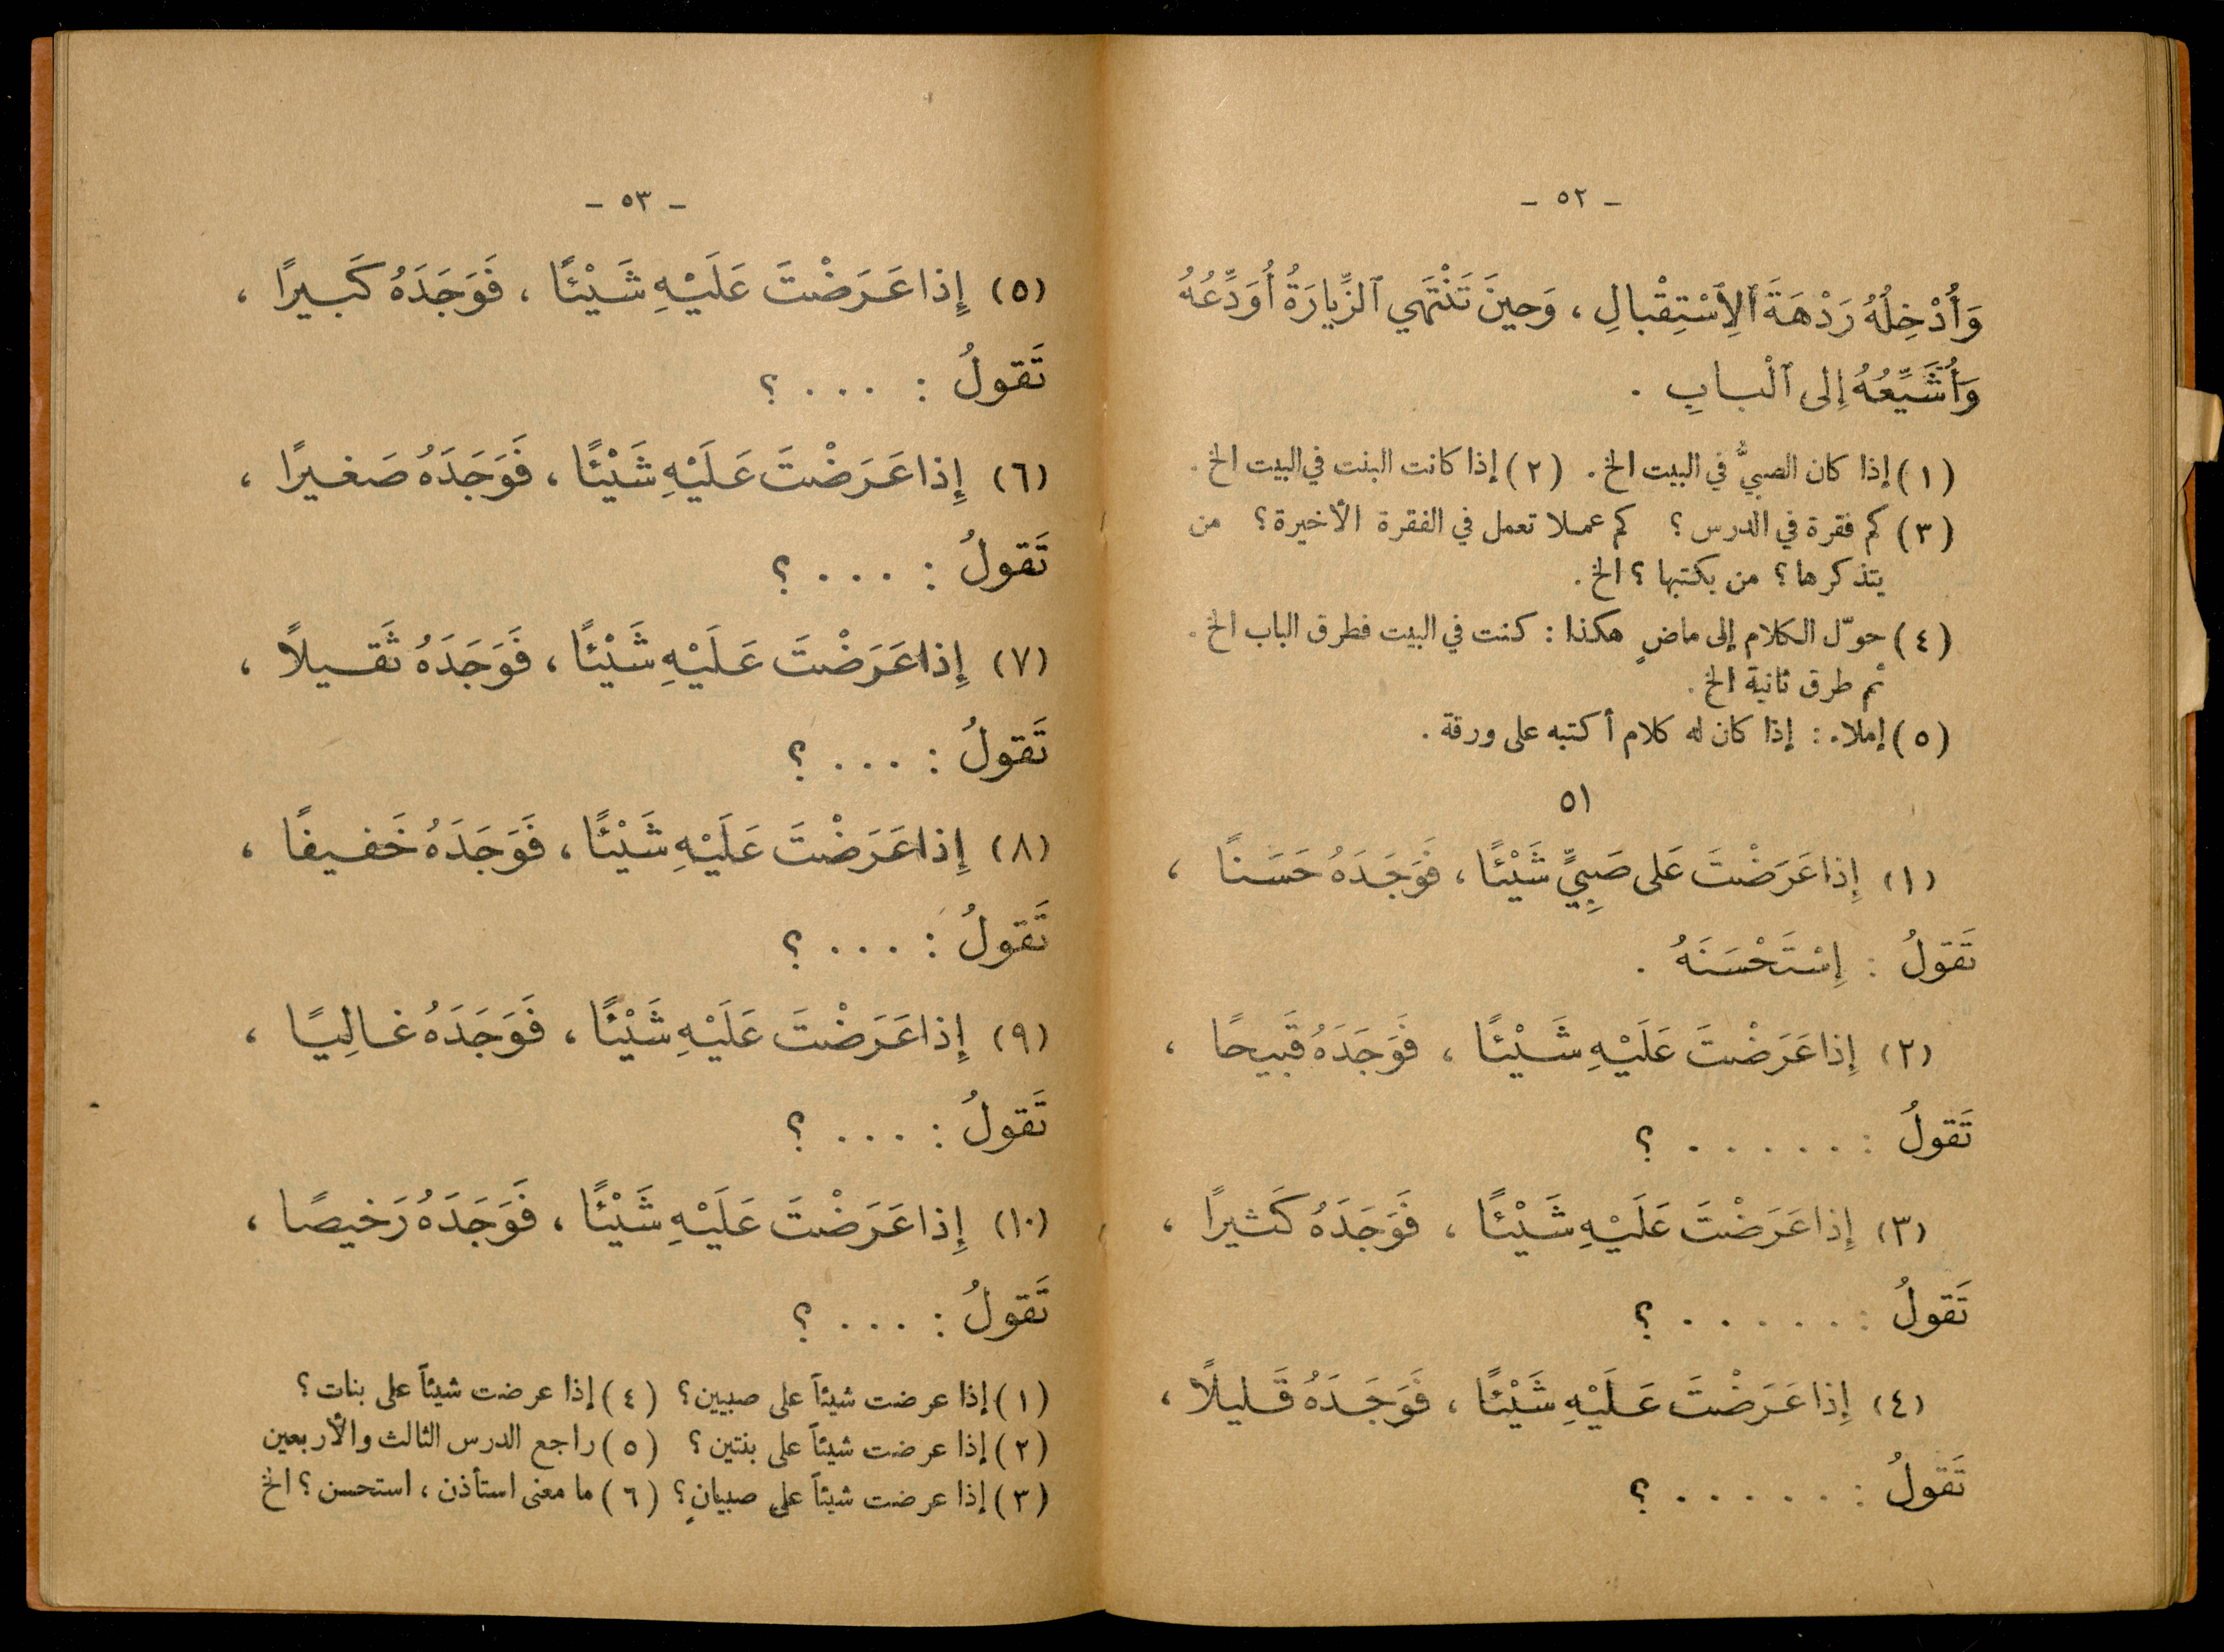 - ٥٢ -
وَأُدْخِلُهُ رَدْهَةَ ٱلِٱسْتِقْبالِ ، وَحينَ تَنْتَهي ٱلزِّيارَةُ أُوَدِّعُهُ
وَأُشَيِّعُهُ إِلى ٱلْبابِ .
(١) إذا كان الصبيُّ في البيت الخ . (٢) إذا كانت البنت في البيت الخ .
(٣) كم فقرة في الدرس ؟ كم عملا تعمل في الفقرة الأخيرة ؟ من
يتذكرها ؟ من يكتبها ؟ الخ .
(٤) حوّل الكلام إلى ماضٍ هكذا : كنت في البيت فطرق الباب الخ .
ثم طرق ثانية الخ .
(٥) إملاء : إذا كان له كلام أكتبه على ورقة .
٥١
(١) إِذا عَرَضْتَ عَلى صَبِيٍّ شَيْئًا ، فَوَجَدَهُ حَسَنًا ،
تَقولُ : إِسْتَحْسَنَهُ .
(٢) إِذا عَرَضْتَ عَلَيْهِ شَيْئًا ، فَوَجَدَهُ قَبيحًا ،
تَقولُ : . . . . . . ؟
(٣) إِذا عَرَضْتَ عَلَيْهِ شَيْئًا ، فَوَجَدَهُ كَثيرًا ،
تَقولُ : . . . . . . ؟
(٤) إِذا عَرَضْتَ عَلَيْهِ شَيْئًا ، فَوَجَدَهُ قَليلاً ،
تَقولُ : . . . . . . ؟
- ٥٣ -
(٥) إِذا عَرَضْتَ عَلَيْهِ شَيْئًا ، فَوَجَدَهُ كَبيرًا ،
تَقولُ : . . . ؟
(٦) إِذا عَرَضْتَ عَلَيْهِ شَيْئًا ، فَوَجَدَهُ صَغيرًا ،
تَقولُ : . . . ؟
(٧) إِذا عَرَضْتَ عَلَيْهِ شَيْئًا ، فَوَجَدَهُ ثَقيلاً ،
تَقولُ : . . . ؟
(٨) إِذا عَرَضْتَ عَلَيْهِ شَيْئًا ، فَوَجَدَهُ خَفيفًا ،
تَقولُ : . . . ؟
(٩) إِذا عَرَضْتَ عَلَيْهِ شَيْئًا ، فَوَجَدَهُ غالِيًا ،
تَقولُ : . . . ؟
(١٠) إِذا عَرَضْتَ عَلَيْهِ شَيْئًا ، فَوَجَدَهُ رَخيصًا ،
تَقولُ : . . . ؟
(١) إذا عرضت شيئاً على صبيين ؟ (٤) إذا عرضت شيئاً على بنات ؟
(٢) إذا عرضت شيئاً على بنتين ؟ (٥) راجع الدرس الثالث والأربعين
(٣) إذا عرضت شيئاً على صبيانٍ ؟ (٦) ما معنى استأذن ، استحسن ؟ الخ